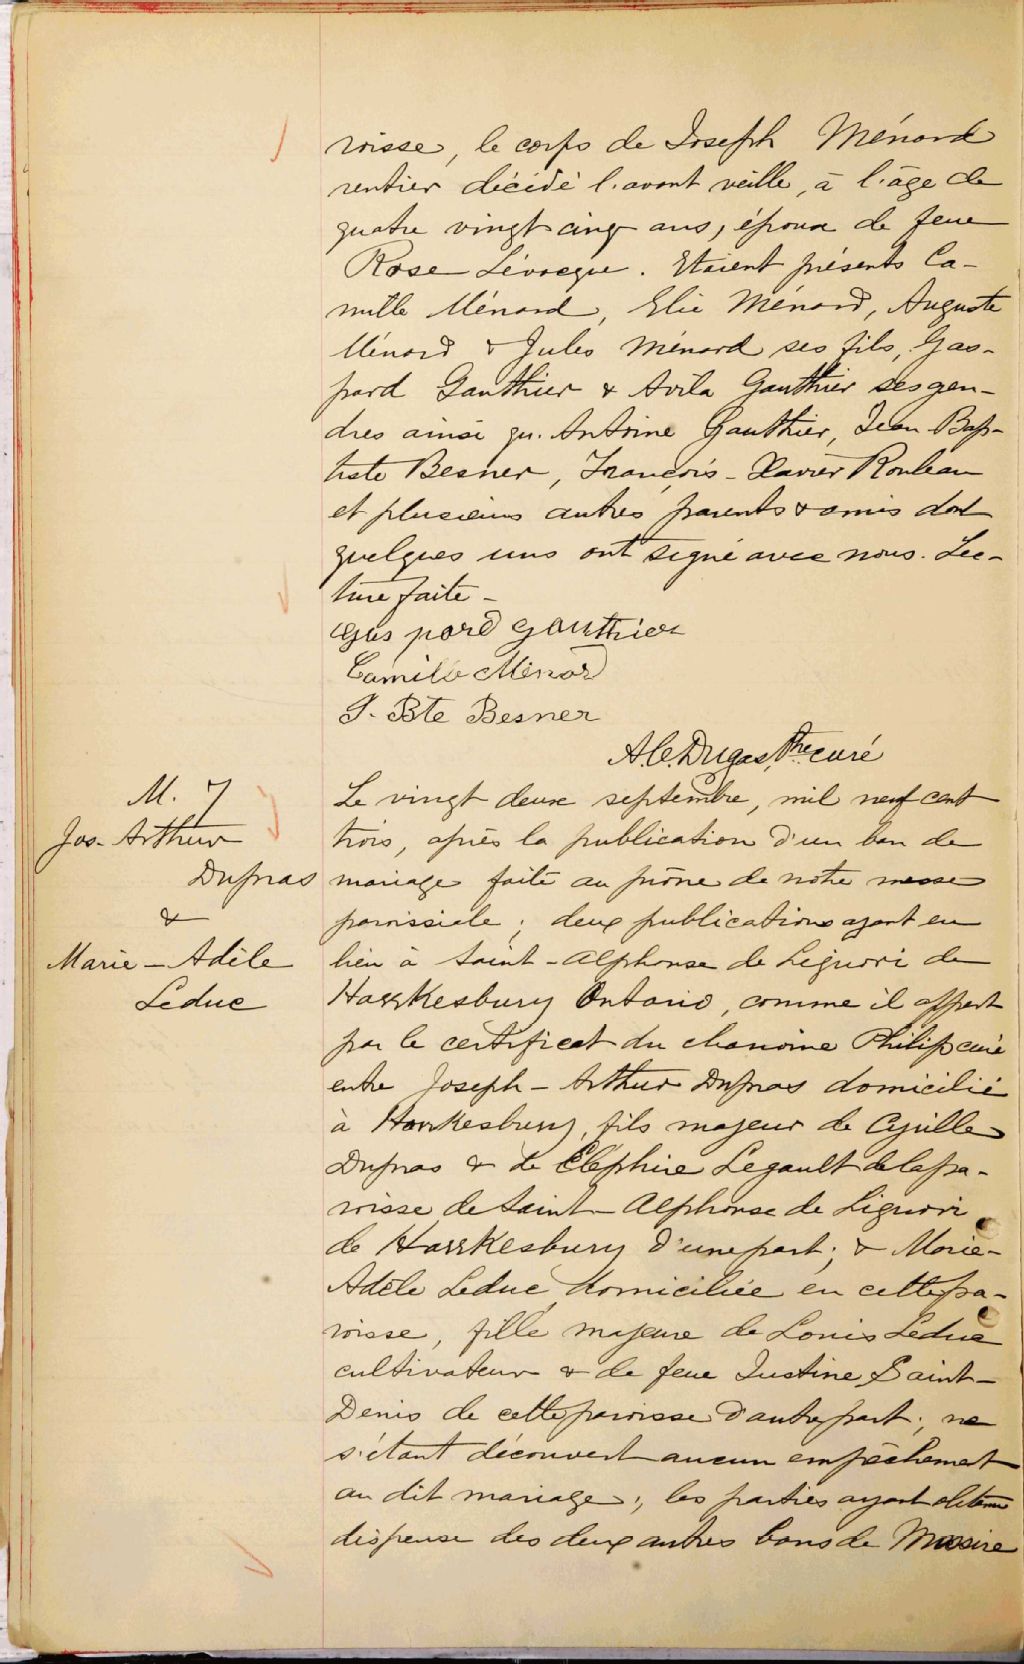 roisse, le corps de Joseph Ménard
rentier décédé l'avant veille, à l'âge de
quatre vingt cinq ans, époux de feue
Rose Lévecque. Etaient présents Ca-
mille Ménard, Elie Ménard, Auguste
Ménard & Jules Ménard ses fils, Gas-
pard Gauthier & Avila Gauthier ses gen-
dres ainsi qu'Antoine Gauthier, Jean-Bap-
tiste Besner, François-Xavier Rouleau
et plusieurs autres parents & amis dont
quelques uns ont signé avec nous. Lec-
ture faite -
Gaspard Gauthier
Camille Ménard
J. Bte Besner
A.C. Dugas, Ptre curé
M. 7
Jos-Arthur
Dupras
&
Marie-Adèle
Leduc
Le vingt deux septembre, mil neuf cent
trois, après la publication d'un ban de
mariage faite au prône de notre messe
paroissiale; deux publications ayant eu
lieu à Saint-Alphonse de Liguori de
Hawkesbury Ontario, comme il appert
par le certificat du chanoine Philip curé
entre Joseph-Arthur Dupras domicilié
à Hawkesbury, fils majeur de Cyrille
Dupras & de Elephire Legault de la pa-
roisse de Saint-Alphonse de Liguori
de Hawkesbury d'une part; & Marie-
Adèle Leduc domiciliée en cette pa-
roisse, fille majeure de Louis Leduc
cultivateur & de feue Justine Saint-
Denis de cette paroisse d'autre part; ne
s'étant découvert aucun empêchement
au dit mariage; les parties ayant obtenu
dispense des deux autres bans de